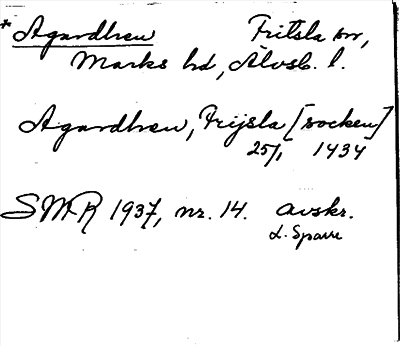 * Agardhren Fritsla sn,
Marks hd, Älvsb. l.
Agardhren, Frijsla [socken]
25/1 1434
SMR 1937, nr. 14. avskr.
L. Sparre